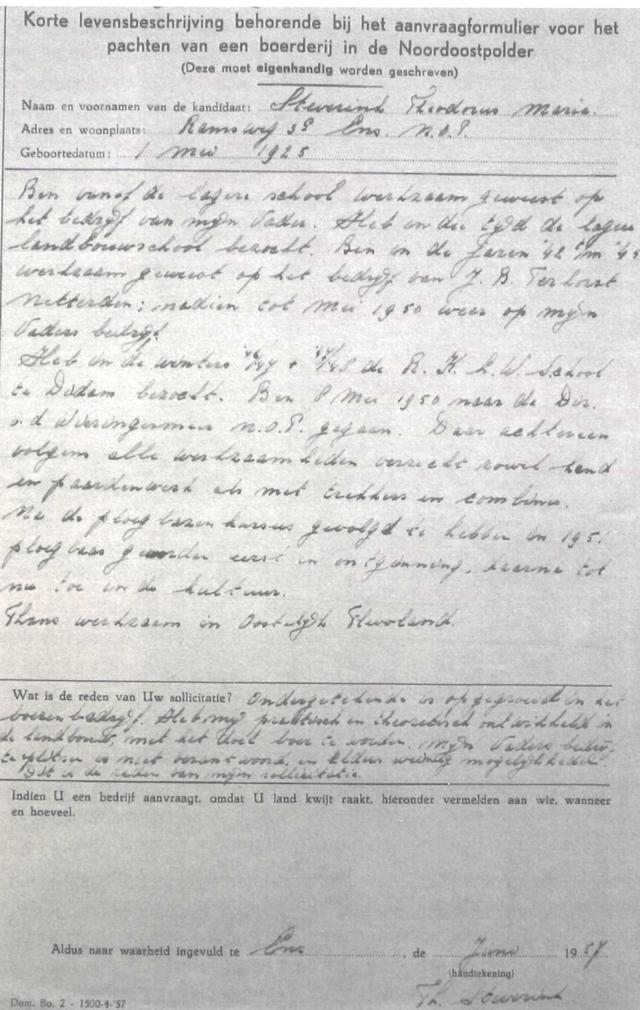 Korte levensbeschrijving behorende bij het aanvraagformulier voor het
pachten van een boerderij in de Noordoostpolder
(Deze moet eigenhandig worden geschreven)
Naam en voornamen van de kandidaat: Steverink Theodorus Maria.
Adres en woonplaats: Ramsweg 39 Ens. N.O.P.
Geboortedatum: 1 mei 1925
Ben vanaf de lagere school werkzaam geweest op
het bedrijf van mijn Vader. Heb in die tijd de lagere
landbouwschool bezocht. Ben in de jaren '42 t/m '45
werkzaam geweest op het bedrijf van J. B. Terhorst
Netterden; nadien tot Mei 1950 weer op mijn
Vaders bedrijf.
Heb in de winters '46/'47 + '47/'48 de R. K. L. W. School
te Didam bezocht. Ben 8 Mei 1950 naar de Dir.
v.d Wieringermeer N.O.P. gegaan. Daar achtereen
volgens alle werkzaamheden verricht zowel hand
en paardenwerk als met trekkers en combines.
Na de ploegbazen kursus gevolgd te hebben in 1951
ploegbaas geworden eerst in ontginning, daarna tot
nu toe in de kultuur.
Thans werkzaam in Oostelijk Flevoland.
Wat is de reden van Uw sollicitatie? Ondergetekende is opgegroeid in het
boerenbedrijf. Heb mij praktisch en theoretisch ontwikkeld in
de landbouw, met het doel boer te worden. Mijn Vaders bedrijf
te splitsen is niet verantwoord, en Elders weinig mogelijkheden
Dit is de reden van mijn sollicitatie.
Indien U een bedrijf aanvraagt, omdat U land kwijt raakt, hieronder vermelden aan wie, wanneer
en hoeveel.
Aldus naar waarheid ingevuld te Ens, de Juni 1957
(handtekening)
Th. Steverink
Dom. Bo. 2 - 1500-4-'57